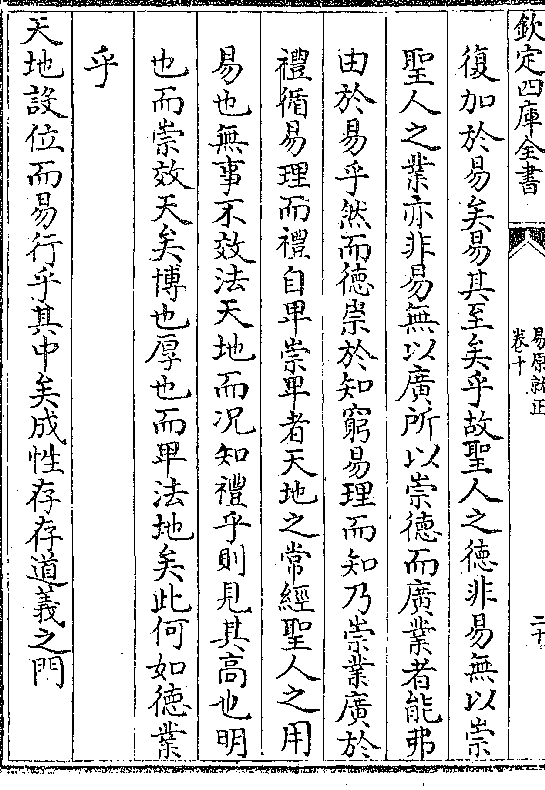 欽定四庫全書
易原就正
卷十
二十
復加於易矣易其至矣乎故聖人之德非易無以崇
聖人之業亦非易無以廣所以崇德而廣業者能弗
由於易乎然而德崇於知窮易理而知乃崇業廣於
禮循易理而禮自卑崇卑者天地之常經聖人之用
易也無事不效法天地而况知禮乎則見其高也明
也而崇效天矣博也厚也而卑法地矣此何如德業
乎
天地設位而易行乎其中矣成性存存道義之門